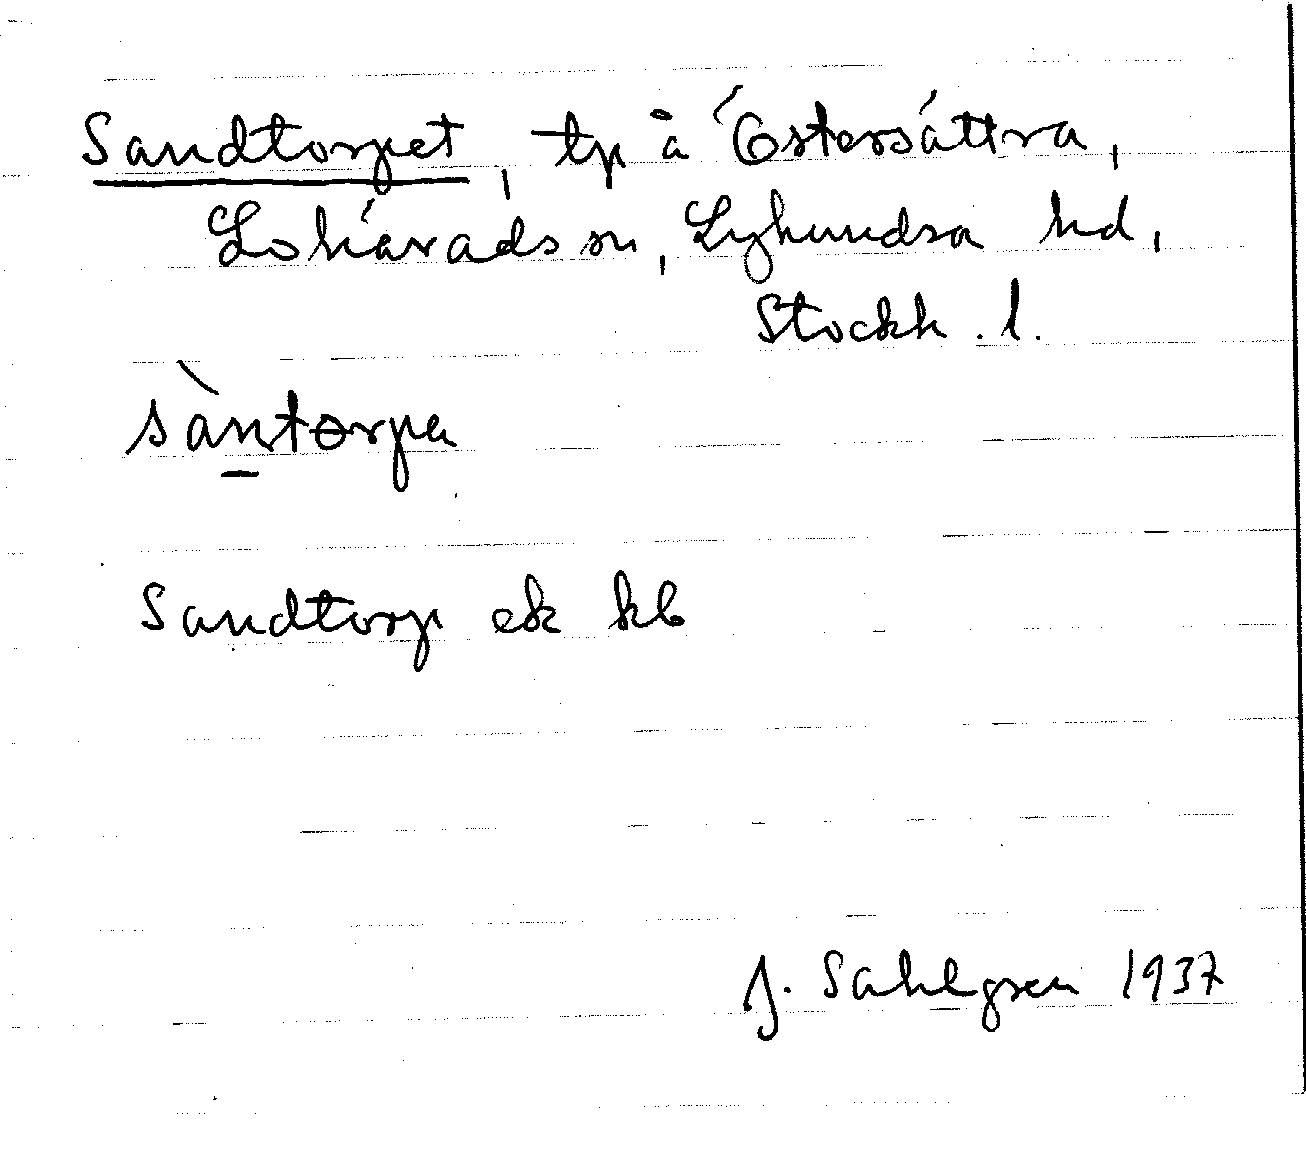 Sandtorpet, tp å Östersättra,
Lohärads sn, Lyhundra hd,
Stockh. l.
sàntɵrpa
Sandtorp ek kb
J. Sahlgren 1937